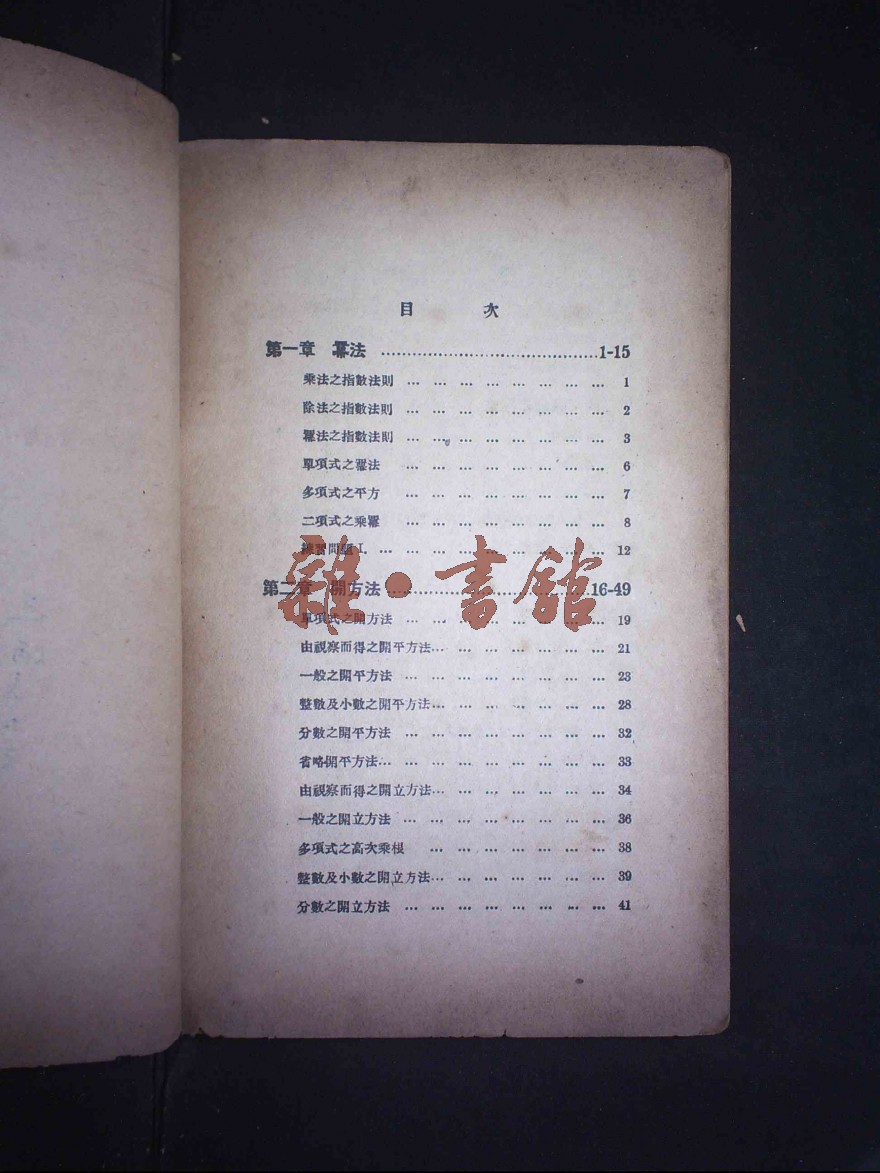 目 次
第一章 冪法 ……………………………………1-15
乘法之指數法則 … … … … … … … … 1
除法之指數法則 … … … … … … … … 2
冪法之指數法則 … … … … … … … … 3
單項式之冪法 … … … … … … … … 6
多項式之平方 … … … … … … … … 7
二項式之乘冪 … … … … … … … … 8
練習問題 I. … … … … … … … … … 12
第二章 開方法 ……………………………………16-49
單項式之開方法 … … … … … … … … 19
由視察而得之開平方法… … … … … … … 21
一般之開平方法 … … … … … … … … 23
整數及小數之開平方法… … … … … … … 28
分數之開平方法 … … … … … … … … 32
省略開平方法… … … … … … … … … 33
由視察而得之開立方法… … … … … … … 34
一般之開立方法 … … … … … … … … 36
多項式之高次乘根 … … … … … … … 38
整數及小數之開立方法… … … … … … … 39
分數之開立方法 … … … … … … … … 41
雜·書館